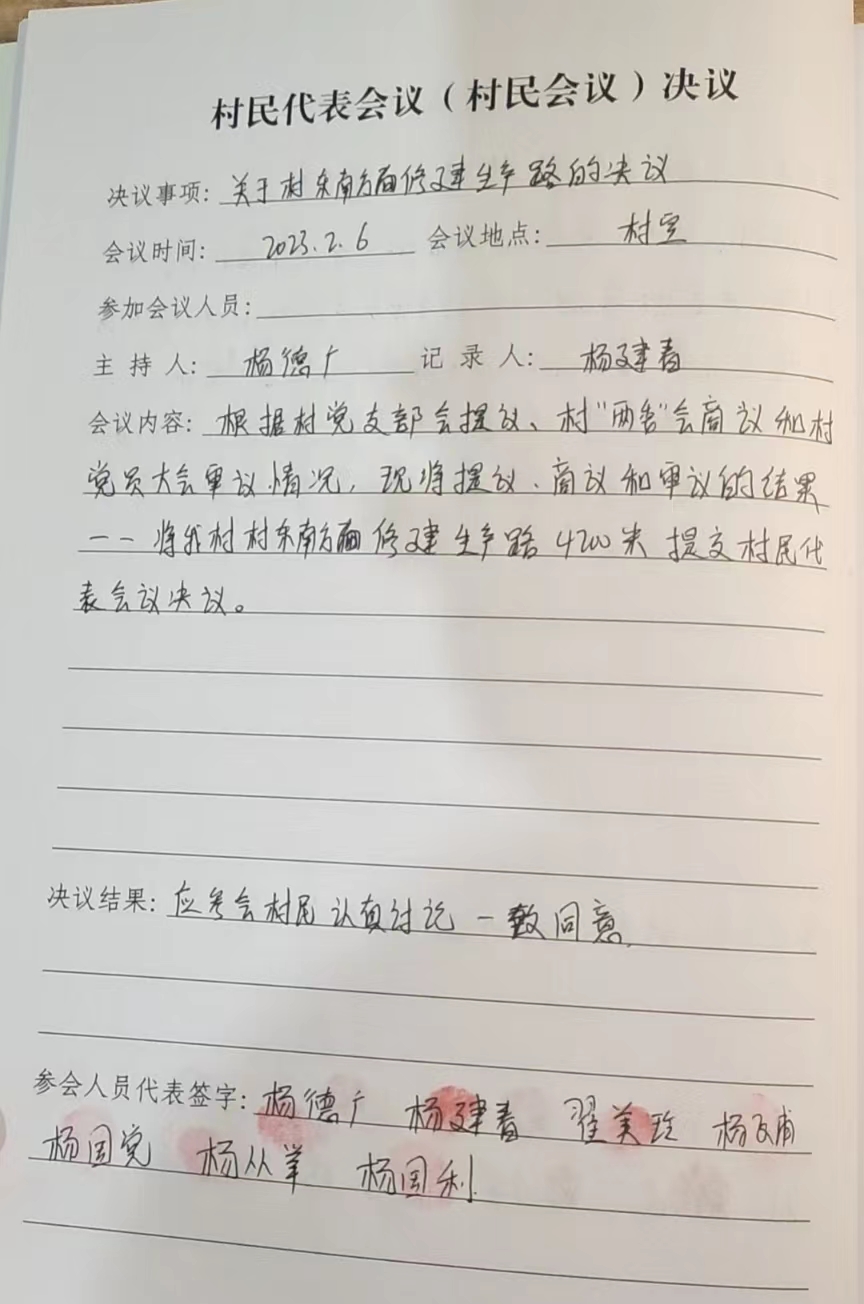 村民代表会议（村民会议）决议
决议事项：关于村东南方面修建生产路的决议
会议时间：2023.2.6 会议地点：村室
参加会议人员：
主持人：杨德广 记录人：杨建春
会议内容：根据村党支部会提议、村“两委”会商议和村
党员大会审议情况，现将提议、商议和审议的结果
——将我村村东南方面修建生产路4200米提交村民代
表会议决议。
决议结果：应参会村民认真讨论一致同意.
参会人员代表签字：杨德广 杨建春 翟美玲
杨国党 杨从举 杨国利